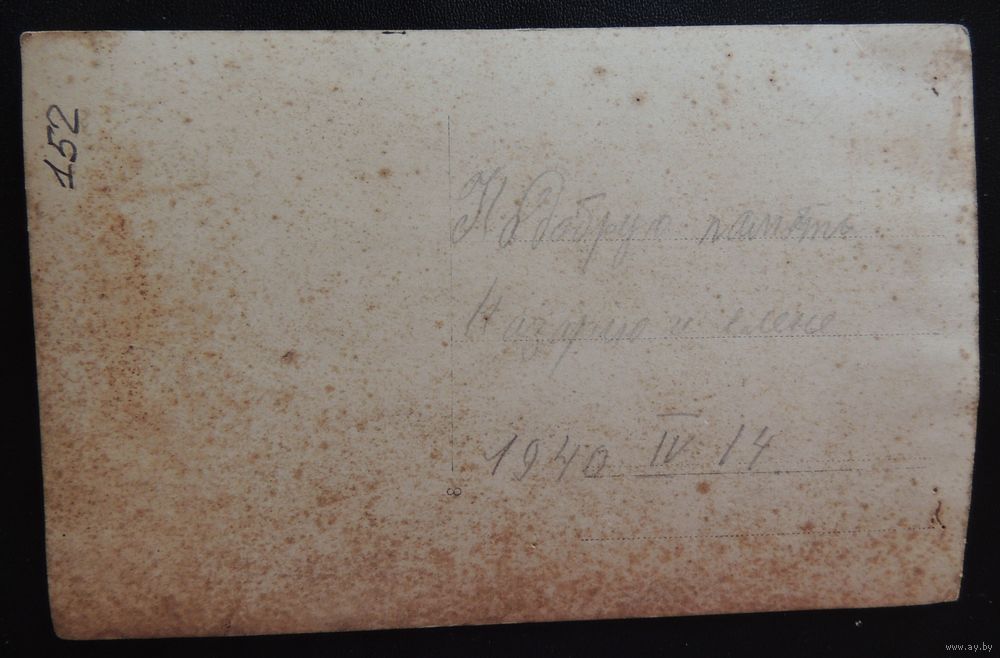 152
На Добрую память
Назарию и елене
1940 IV 14
8
www.ay.by